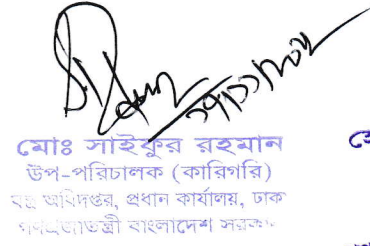 মোঃ সাইকুর রহমান
উপ-পরিচালক (কারিগরি)
বস্ত্র অধিদপ্তর, প্রধান কার্যালয়, ঢাক
গণপ্রজাতন্ত্রী বাংলাদেশ সরকার